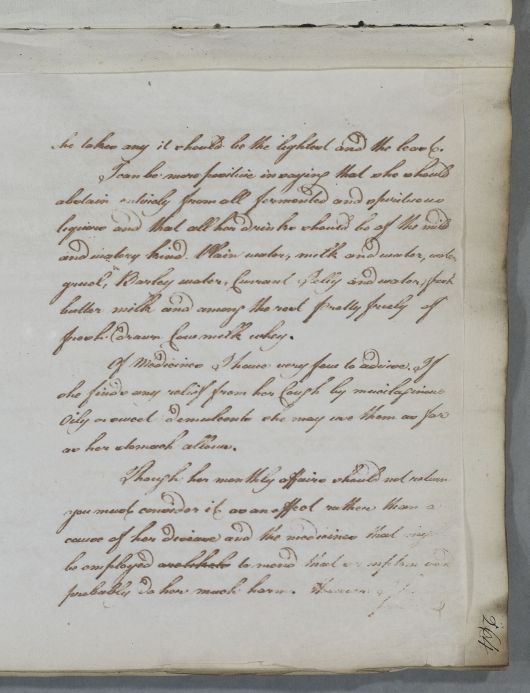 she takes any it should be the lightest and the least.
I can be more positive in saying that she should
abstain entirely from all fermented and spirituous
liquors and that all her drinks should be of the mild
and watery kind. Plain water, milk and water, water
gruel, Barley water, Currant Jelly and water, fresh
butter milk and among the rest pretty freely of
fresh drawn Cow milk whey.
Of Medicines I have very few to advise. If
she finds any relief from her Cough by mucilaginous
Oily or sweet demulcents she may use them as far
as her stomach allows.
Though her monthly affairs should not return
you must consider it as an effect rather than a
cause of her disease and the medicines that might
be employed to mend that symptom would
probably do her much harm.
264